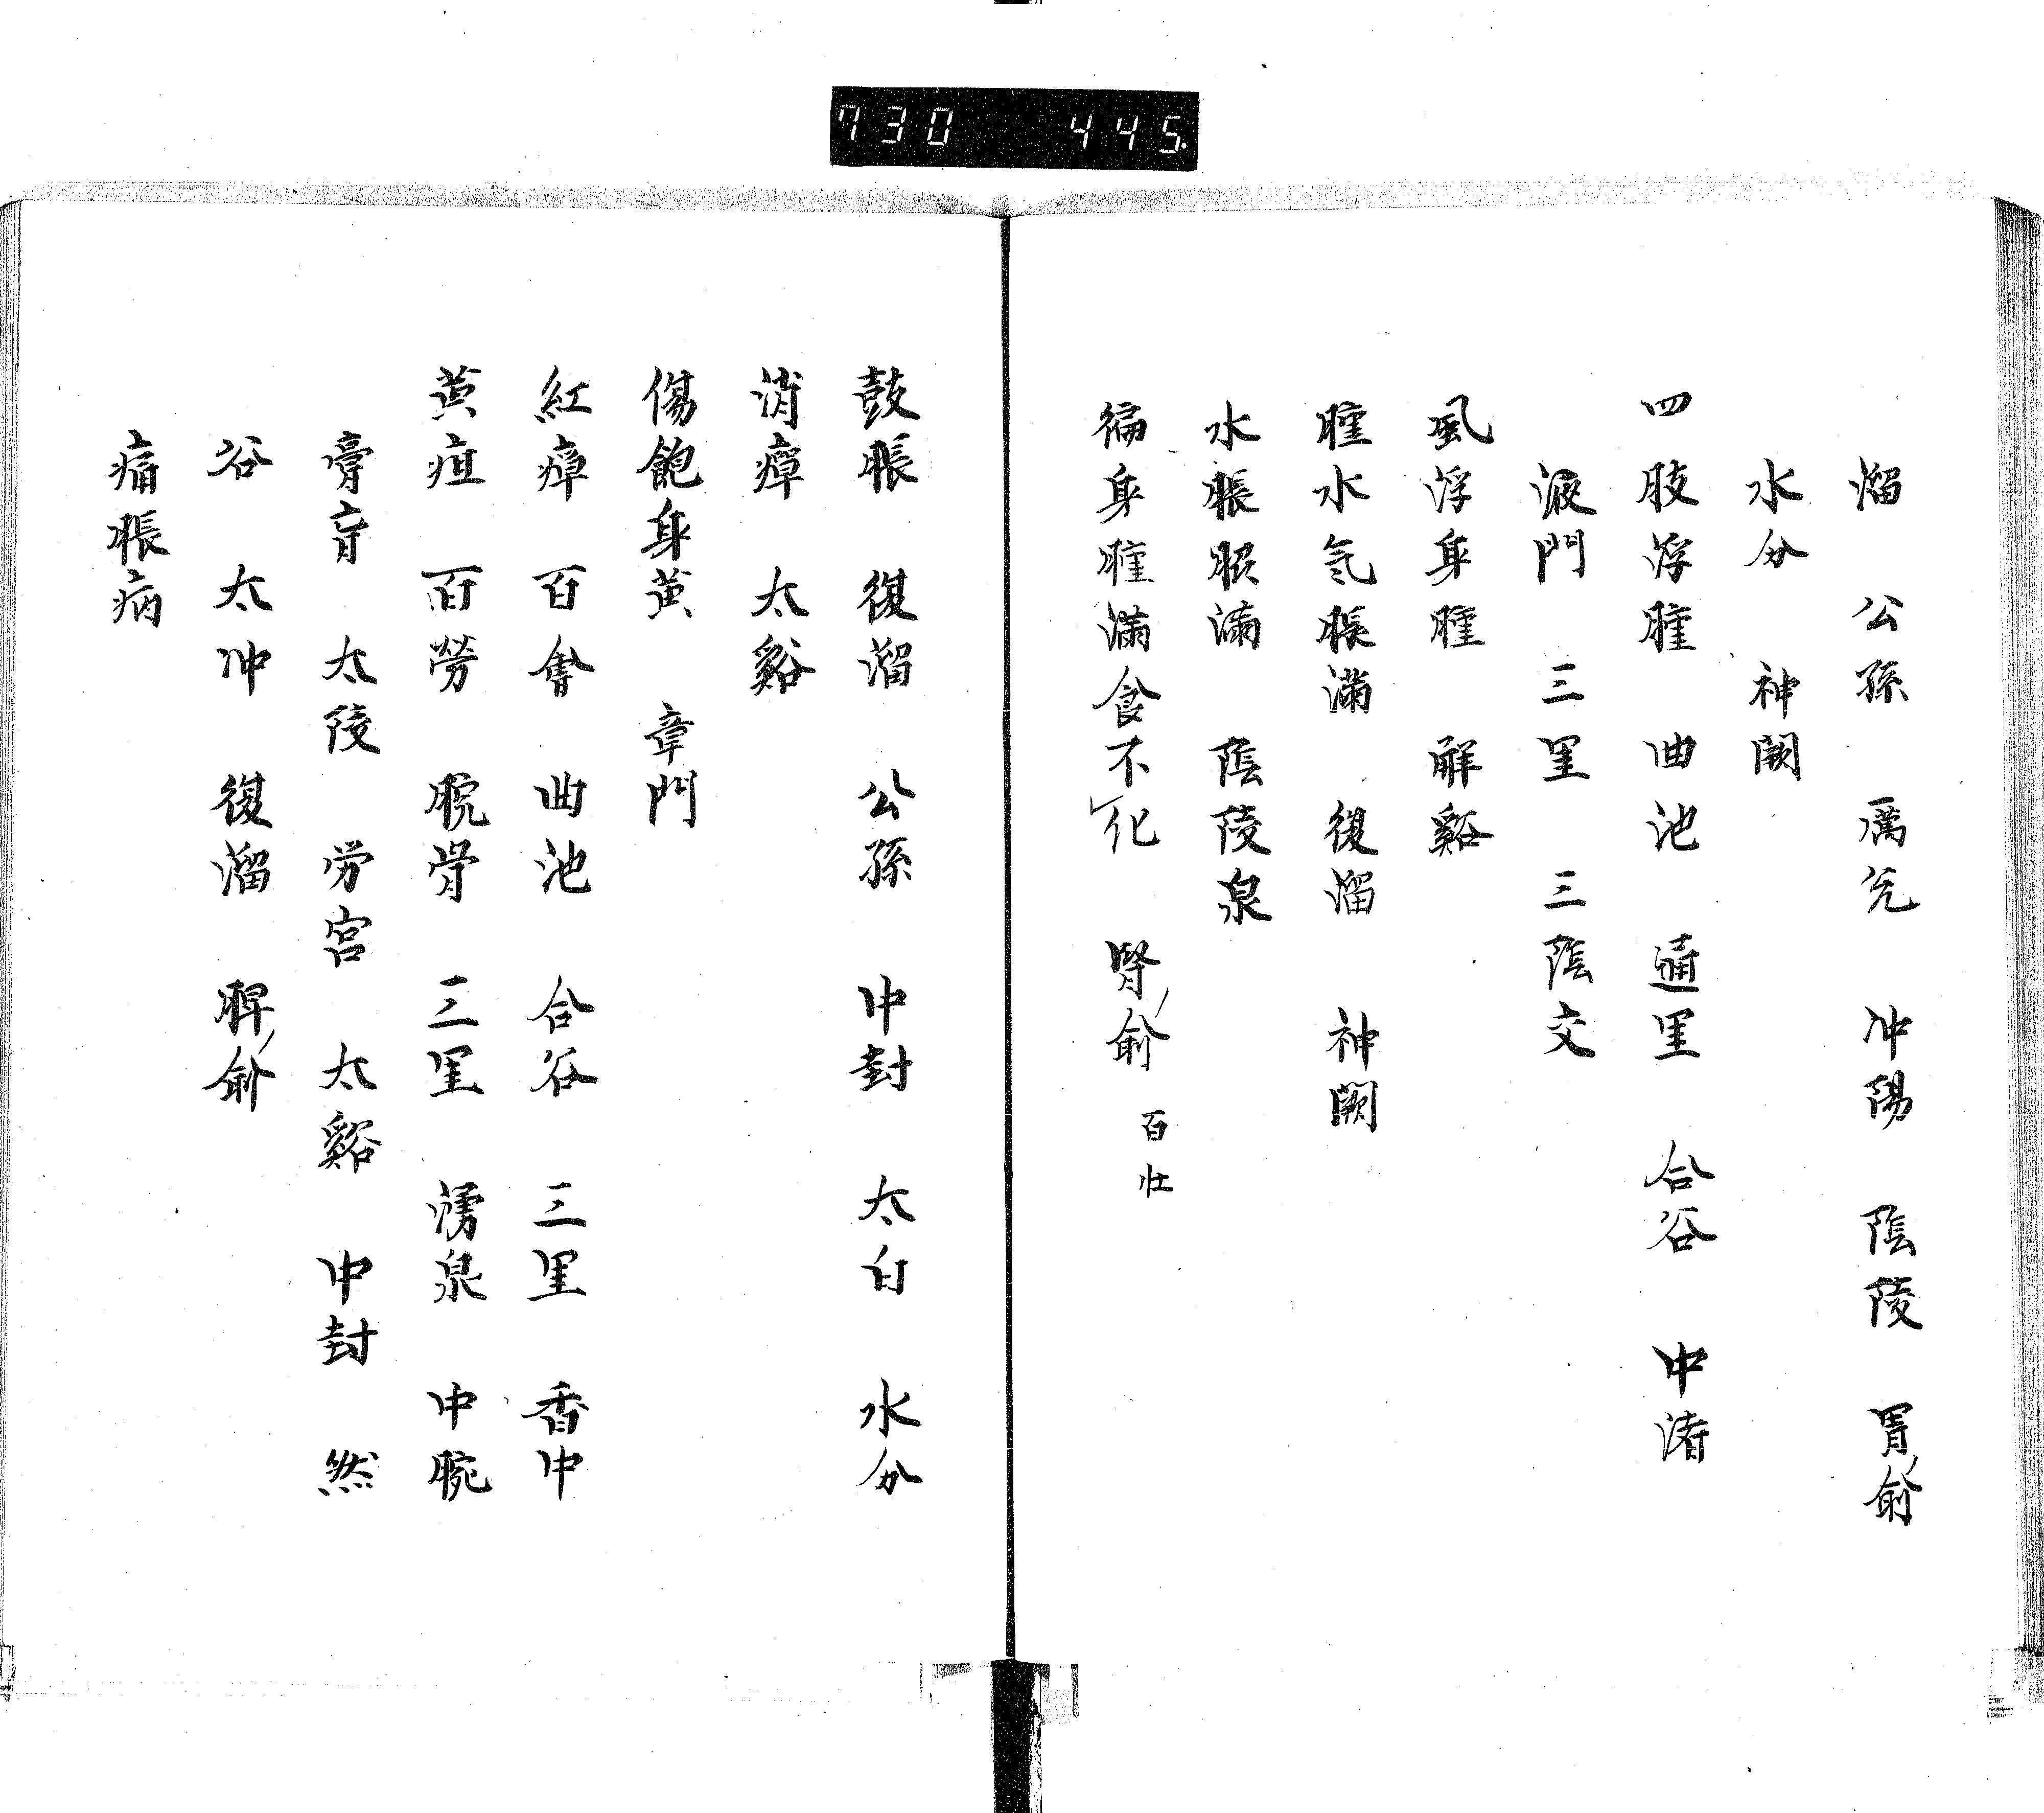 730 445
溜 公孫 厲兌 冲陽 陰陵 胃俞
水分 神闕
四肢浮腫 曲池 通里 合谷 中渚
液門 三里 三陰交
風浮身腫 解谿
腫水氣脹滿 復溜 神闕
水脹脹滿 陰陵泉
徧身腫滿食不化 腎俞 百壮
鼓脹 復溜 公孫 中封 太白 水分
消癉 太谿
傷飽身黃 章門
紅瘴 百會 曲池 合谷 三里 香中
黃疸 百勞 腕骨 三里 湧泉 中脘
膏肓 太陵 労宮 太谿 中封 然
谷 太冲 復溜 脾俞
痛脹病